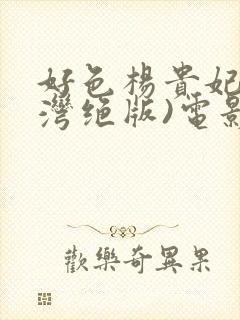 好色楊貴妃
灣絕版)電影
歡樂奇異果